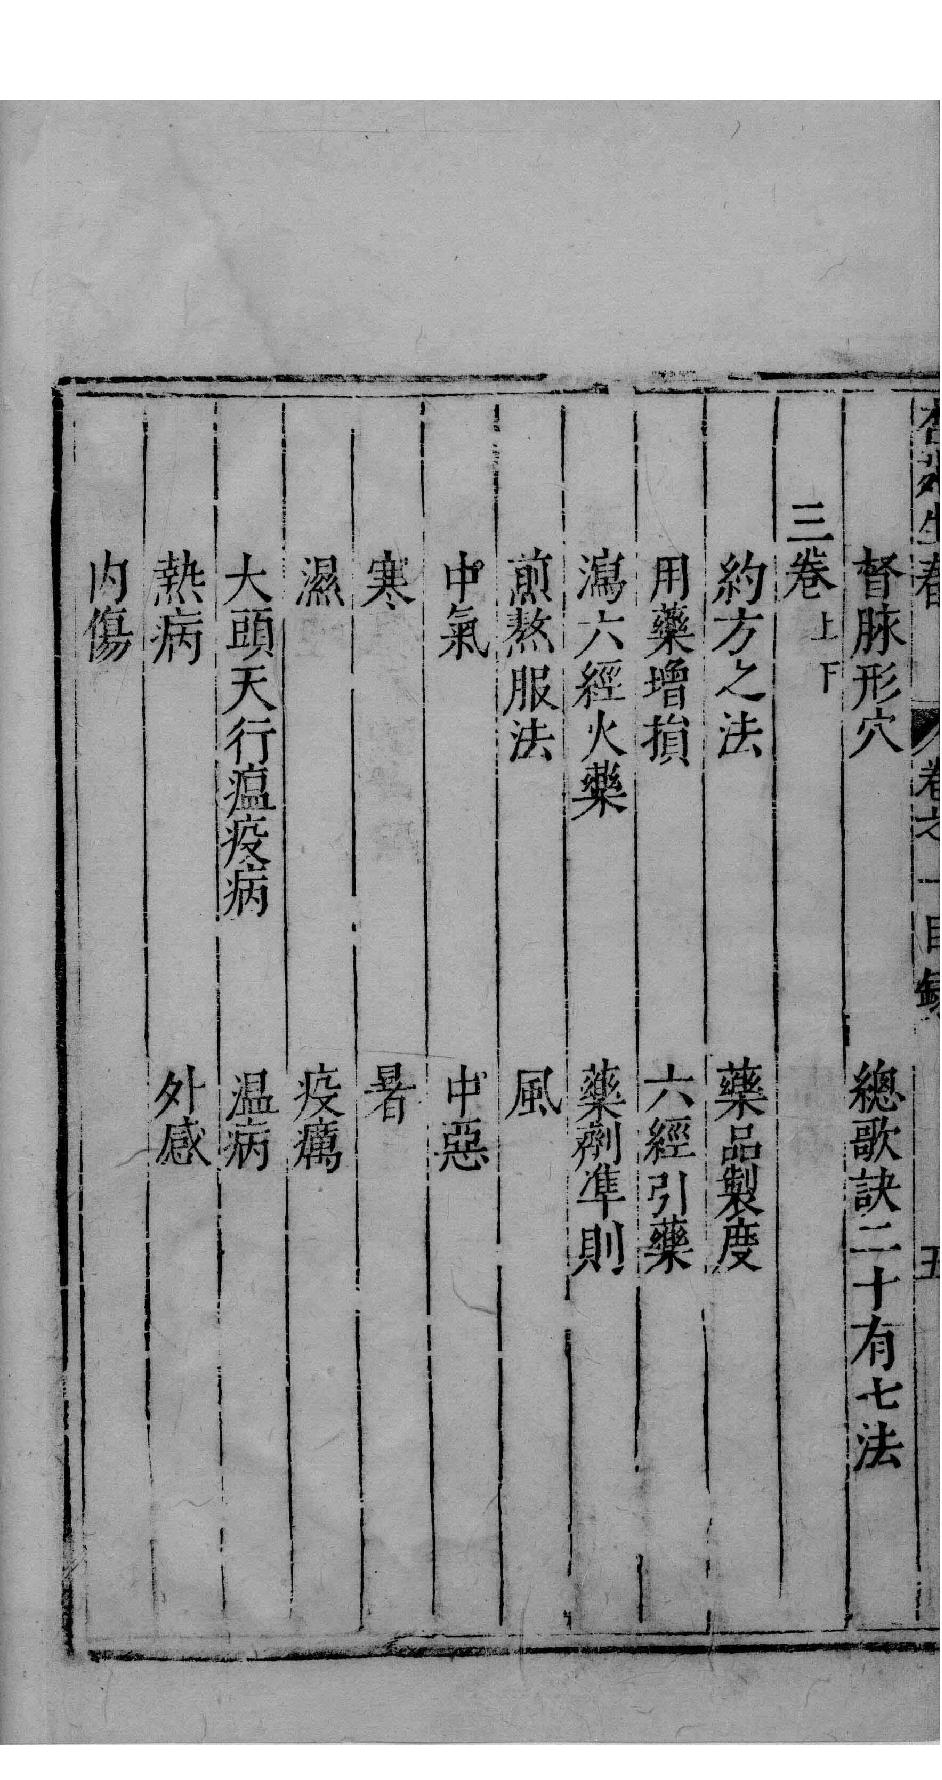 杏苑生春 卷之一目錄 五
督脉形穴 總歌訣二十有七法
三卷上下
約方之法 藥品製度
用藥增損 六經引藥
瀉六經火藥 藥劑準則
煎熬服法 風
中氣 中惡
寒 暑
濕 疫癘
大頭天行瘟疫病 温病
熱病 外感
内傷